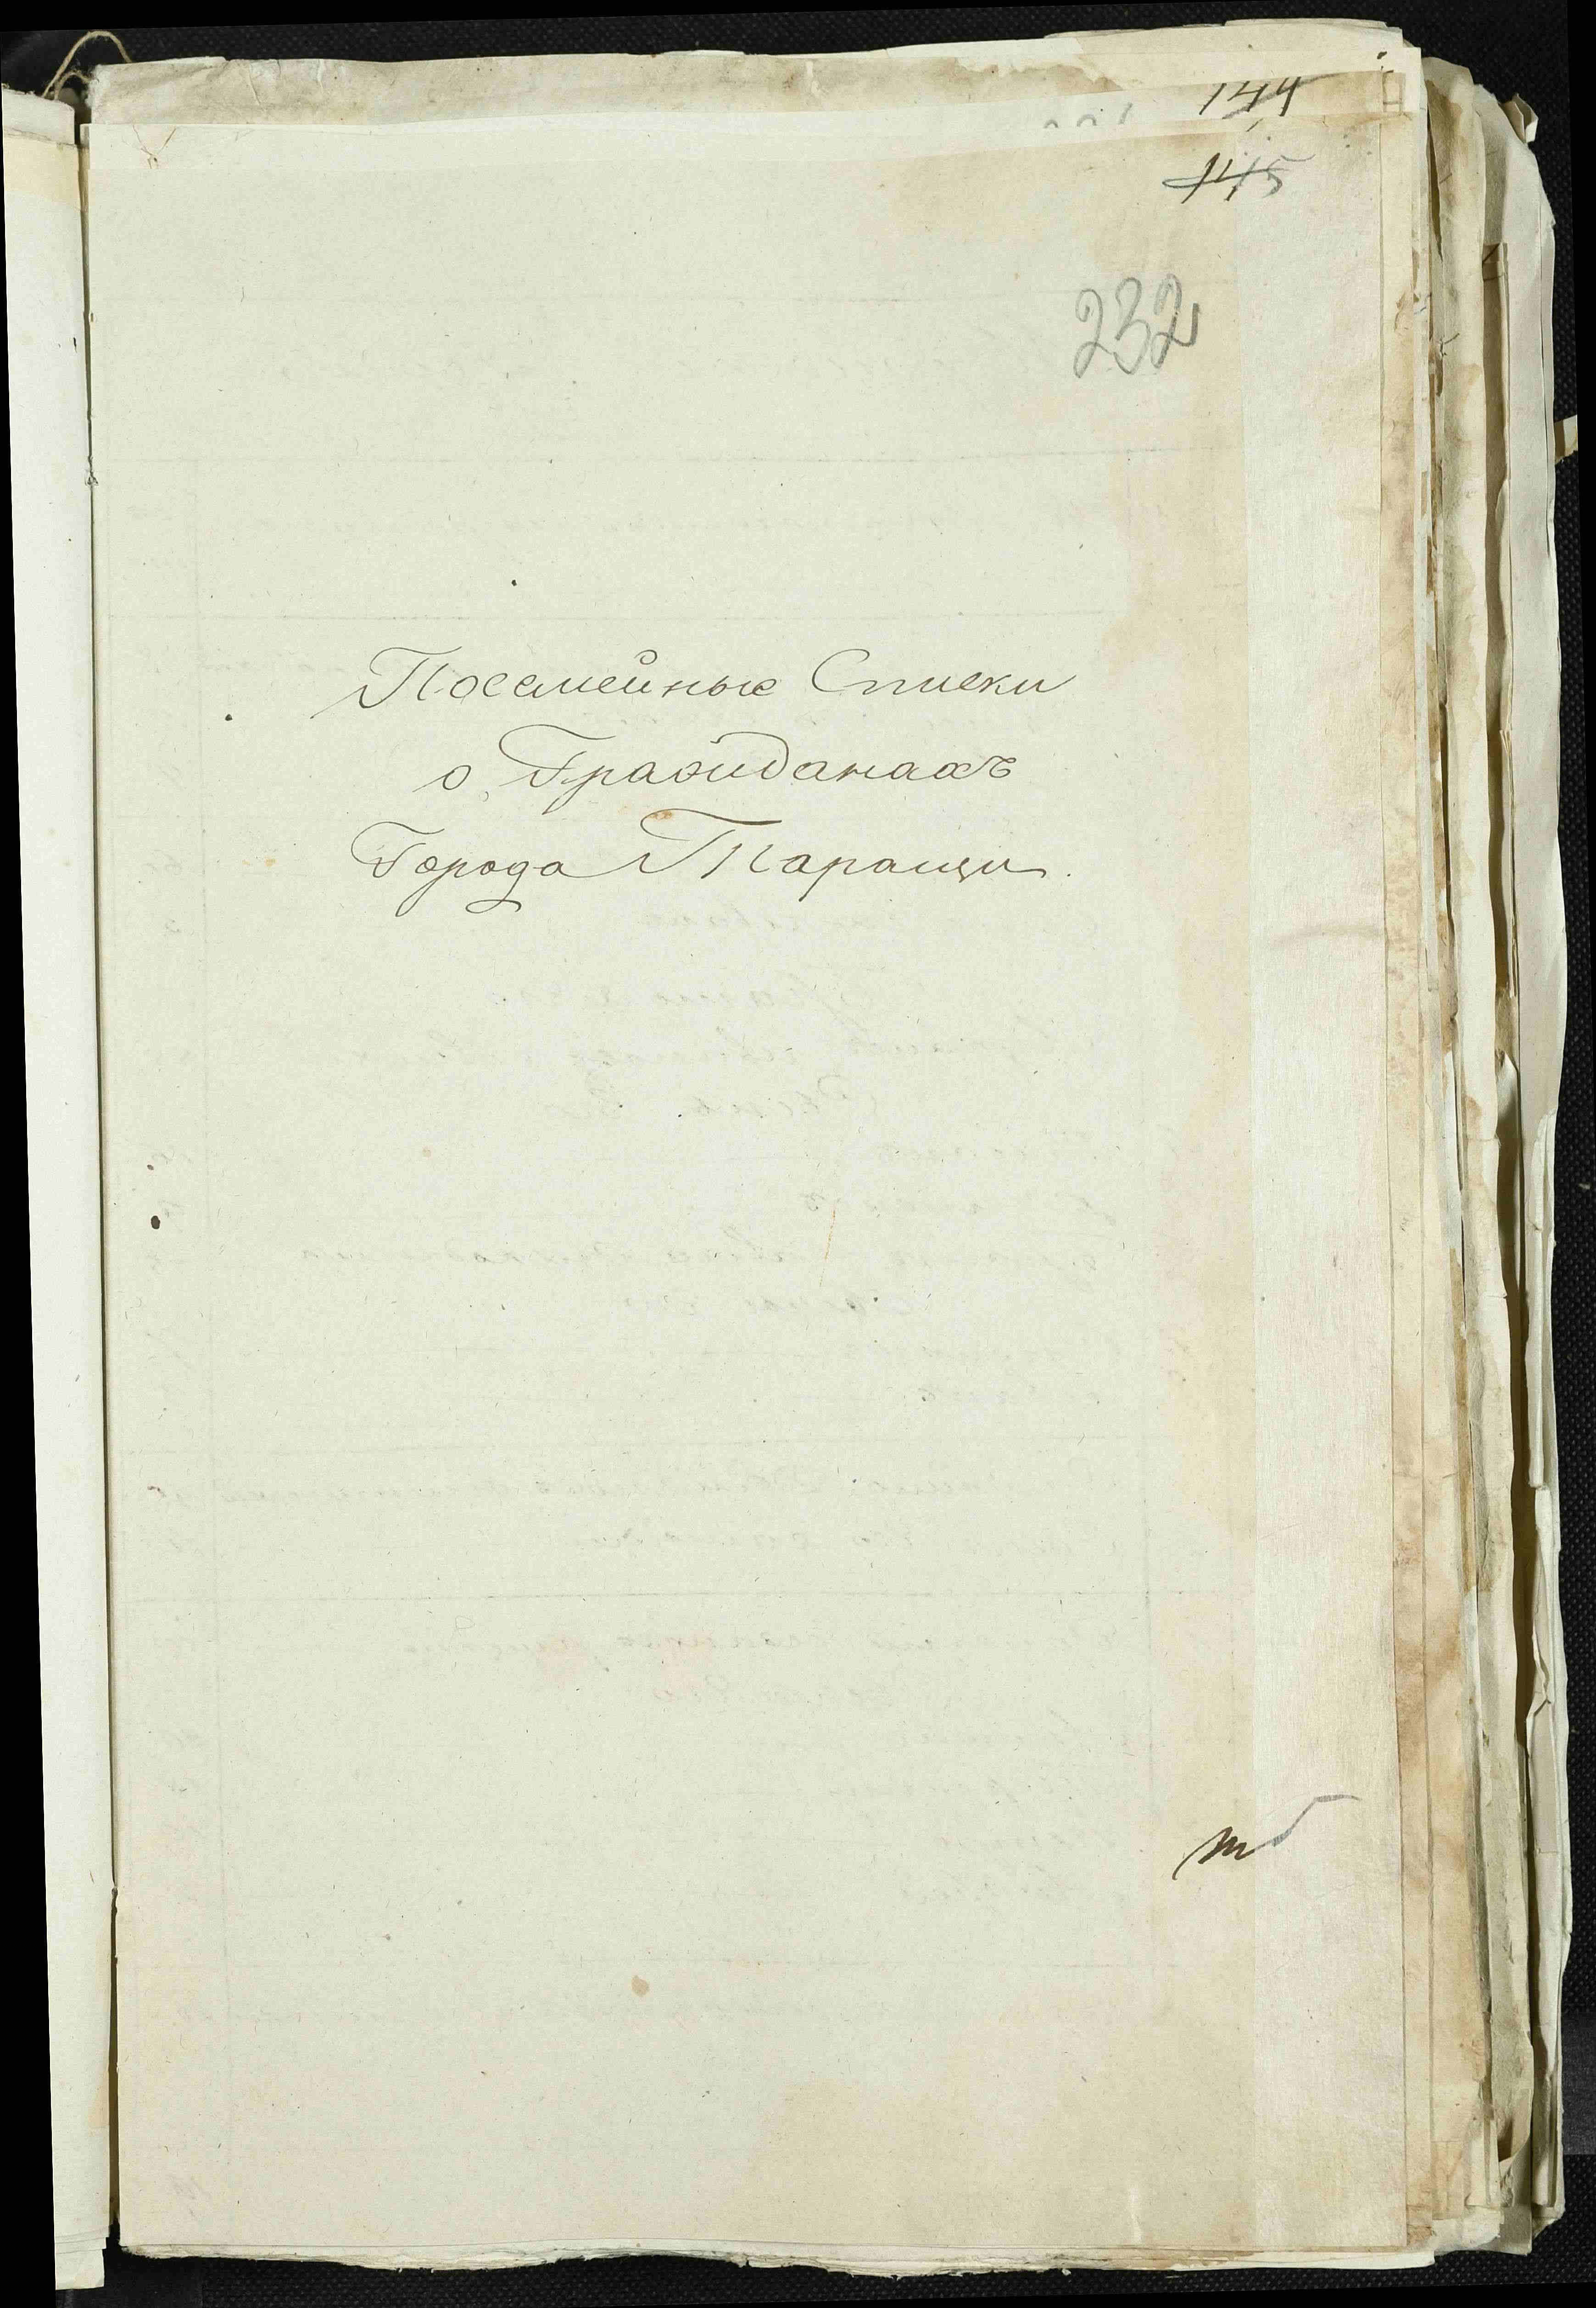 144
145
232
Посемейные Списки
о Гражданахъ
Города Таращи.